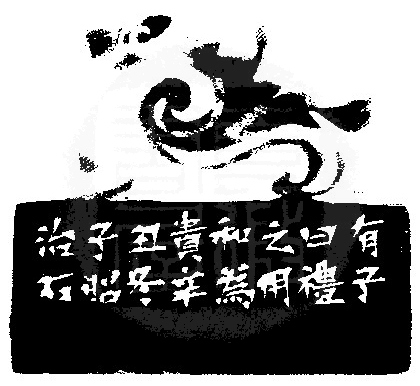 有子
曰禮
之用
和為
貴辛
丑冬
子昭
治石